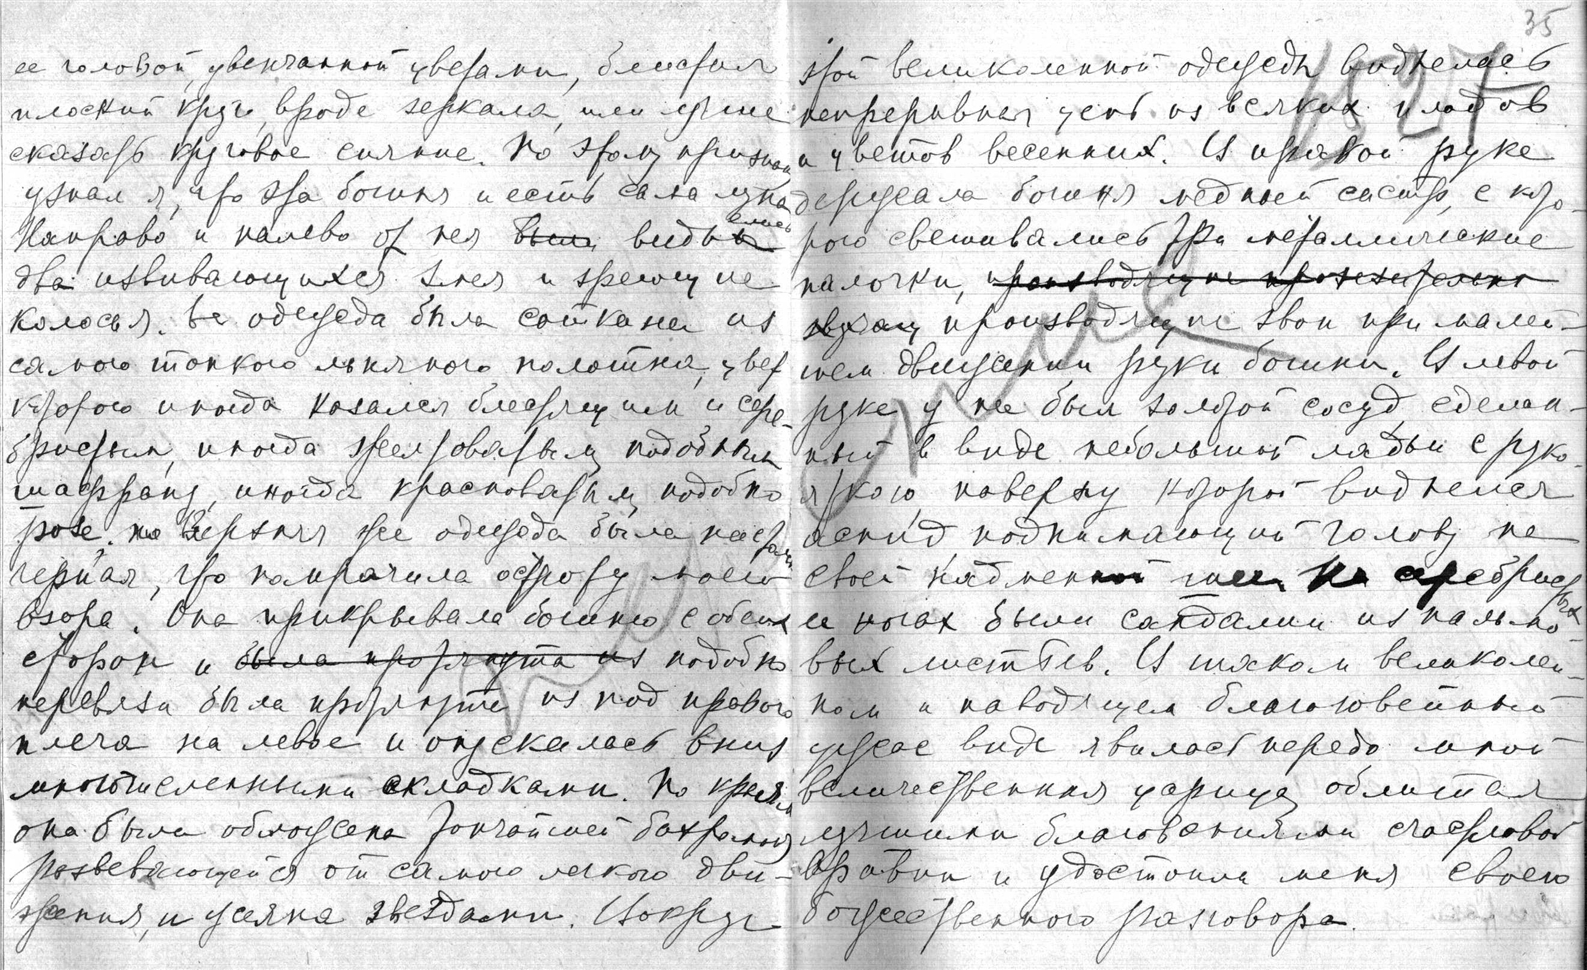 ее головой, увенчанной цветами, блистал
плоский круг, вроде зеркала, или лучше
сказать круговое сияние. По этому признаку
узнал я, что эта богиня и есть сама луна
Направо и налево от нея были виднелись
два извивающихся змея и зреющие
колосья. Ее одежда была соткана из
самого тонкого льняного полотна, цвет
которого иногда казался блестящим и сере-
бристым, иногда желтоватым, подобным
шафрану, иногда красноватым, подобно
розе. Верхняя же одежда была настолько
черная, что помрачила остроту моего
взора. Она прикрывала богиню с обеих
сторон и была протянута из подобно
перевязи была протянута из под правого
плеча на левое и опускалась вниз
многочисленными складками. По краям
она была обложена тончайшей бахромой
развевающейся от самого легкого дви-
жения, и усеяна звездами. Вокруг
35
1527
этой великолепной одежды виднелась
непрерывная цепь из всяких плодов
и цветов весенних. В правой руке
держала богиня медный систр, с кото-
рого свешивались три металлические
палочки, производящие пронзительно
звук производящие звон при малей-
шем движении руки богини. В левой
руке у нее был золотой сосуд, сделан-
ный в виде небольшой ладьи с руко-
яткою, поверху которой виднелся
аспид поднимающий голову на
своей надменной шее. На серебристых
ее ногах были сандалии из пальмо-
вых листьев. В таком великолеп-
ном и наводящем благоговейный
ужас виде явилась передо мной
величественная царица, облистая
лучшими благовониями счастливой
Аравии и удостоила меня своего
божественного разговора.